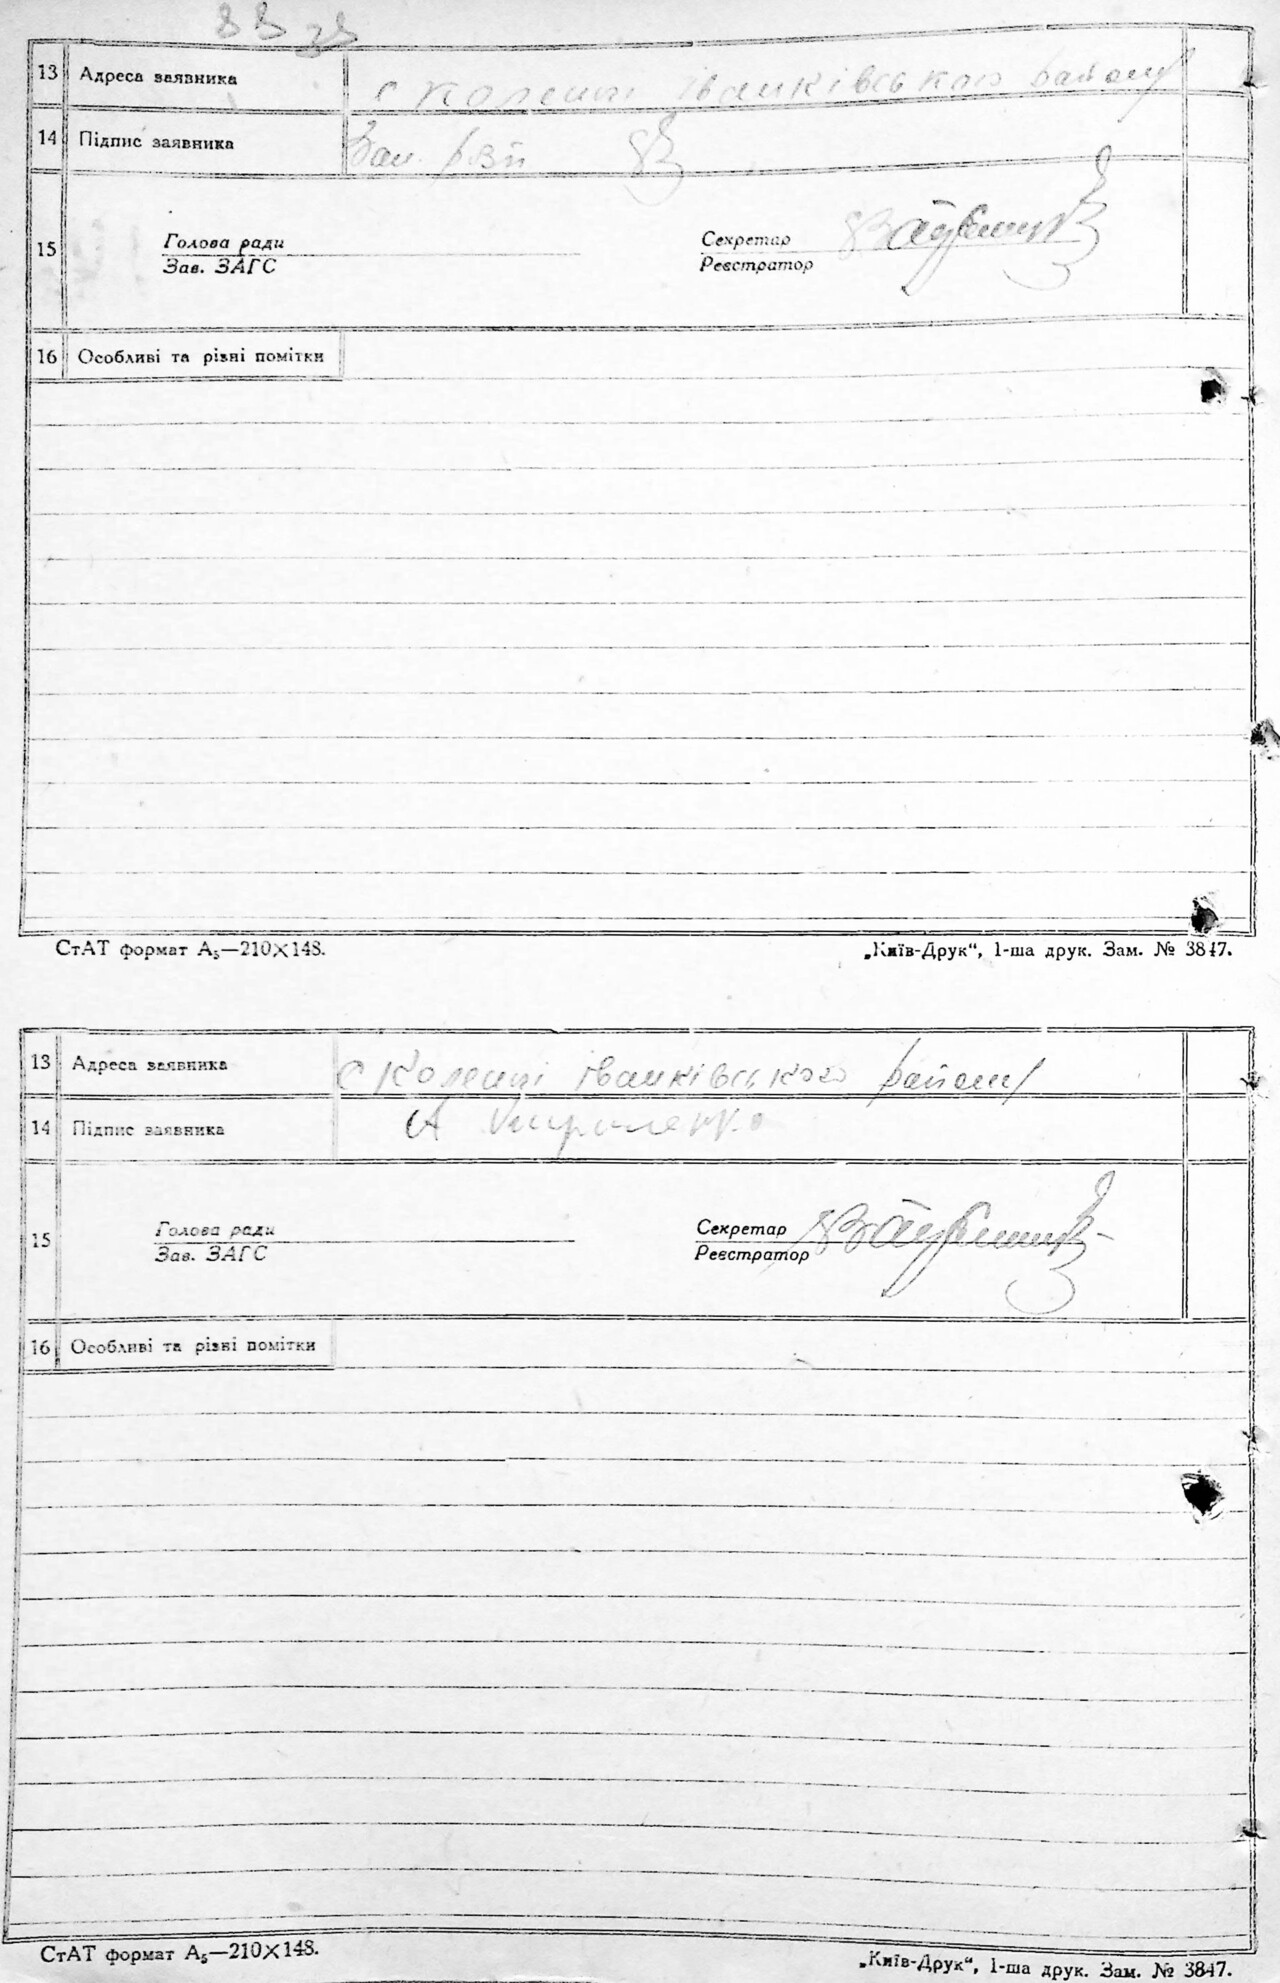 13 Адреса заявника с Коленці іванківського району
14 Підпис заявника
Голова ради Секретар
15
Зав. ЗАГС Реєстратор
16 Особливі та різні помітки
СтАТ формат А₅—210×148. „Київ-Друк“, 1-ша друк. Зам. № 3847.
13 Адреса заявника с Коленці іванківського району
14 Підпис заявника А
Голова ради Секретар
15
Зав. ЗАГС Реєстратор
16 Особливі та різні помітки
СтАТ формат А₅—210×148. „Київ-Друк“, 1-ша друк. Зам. № 3847.